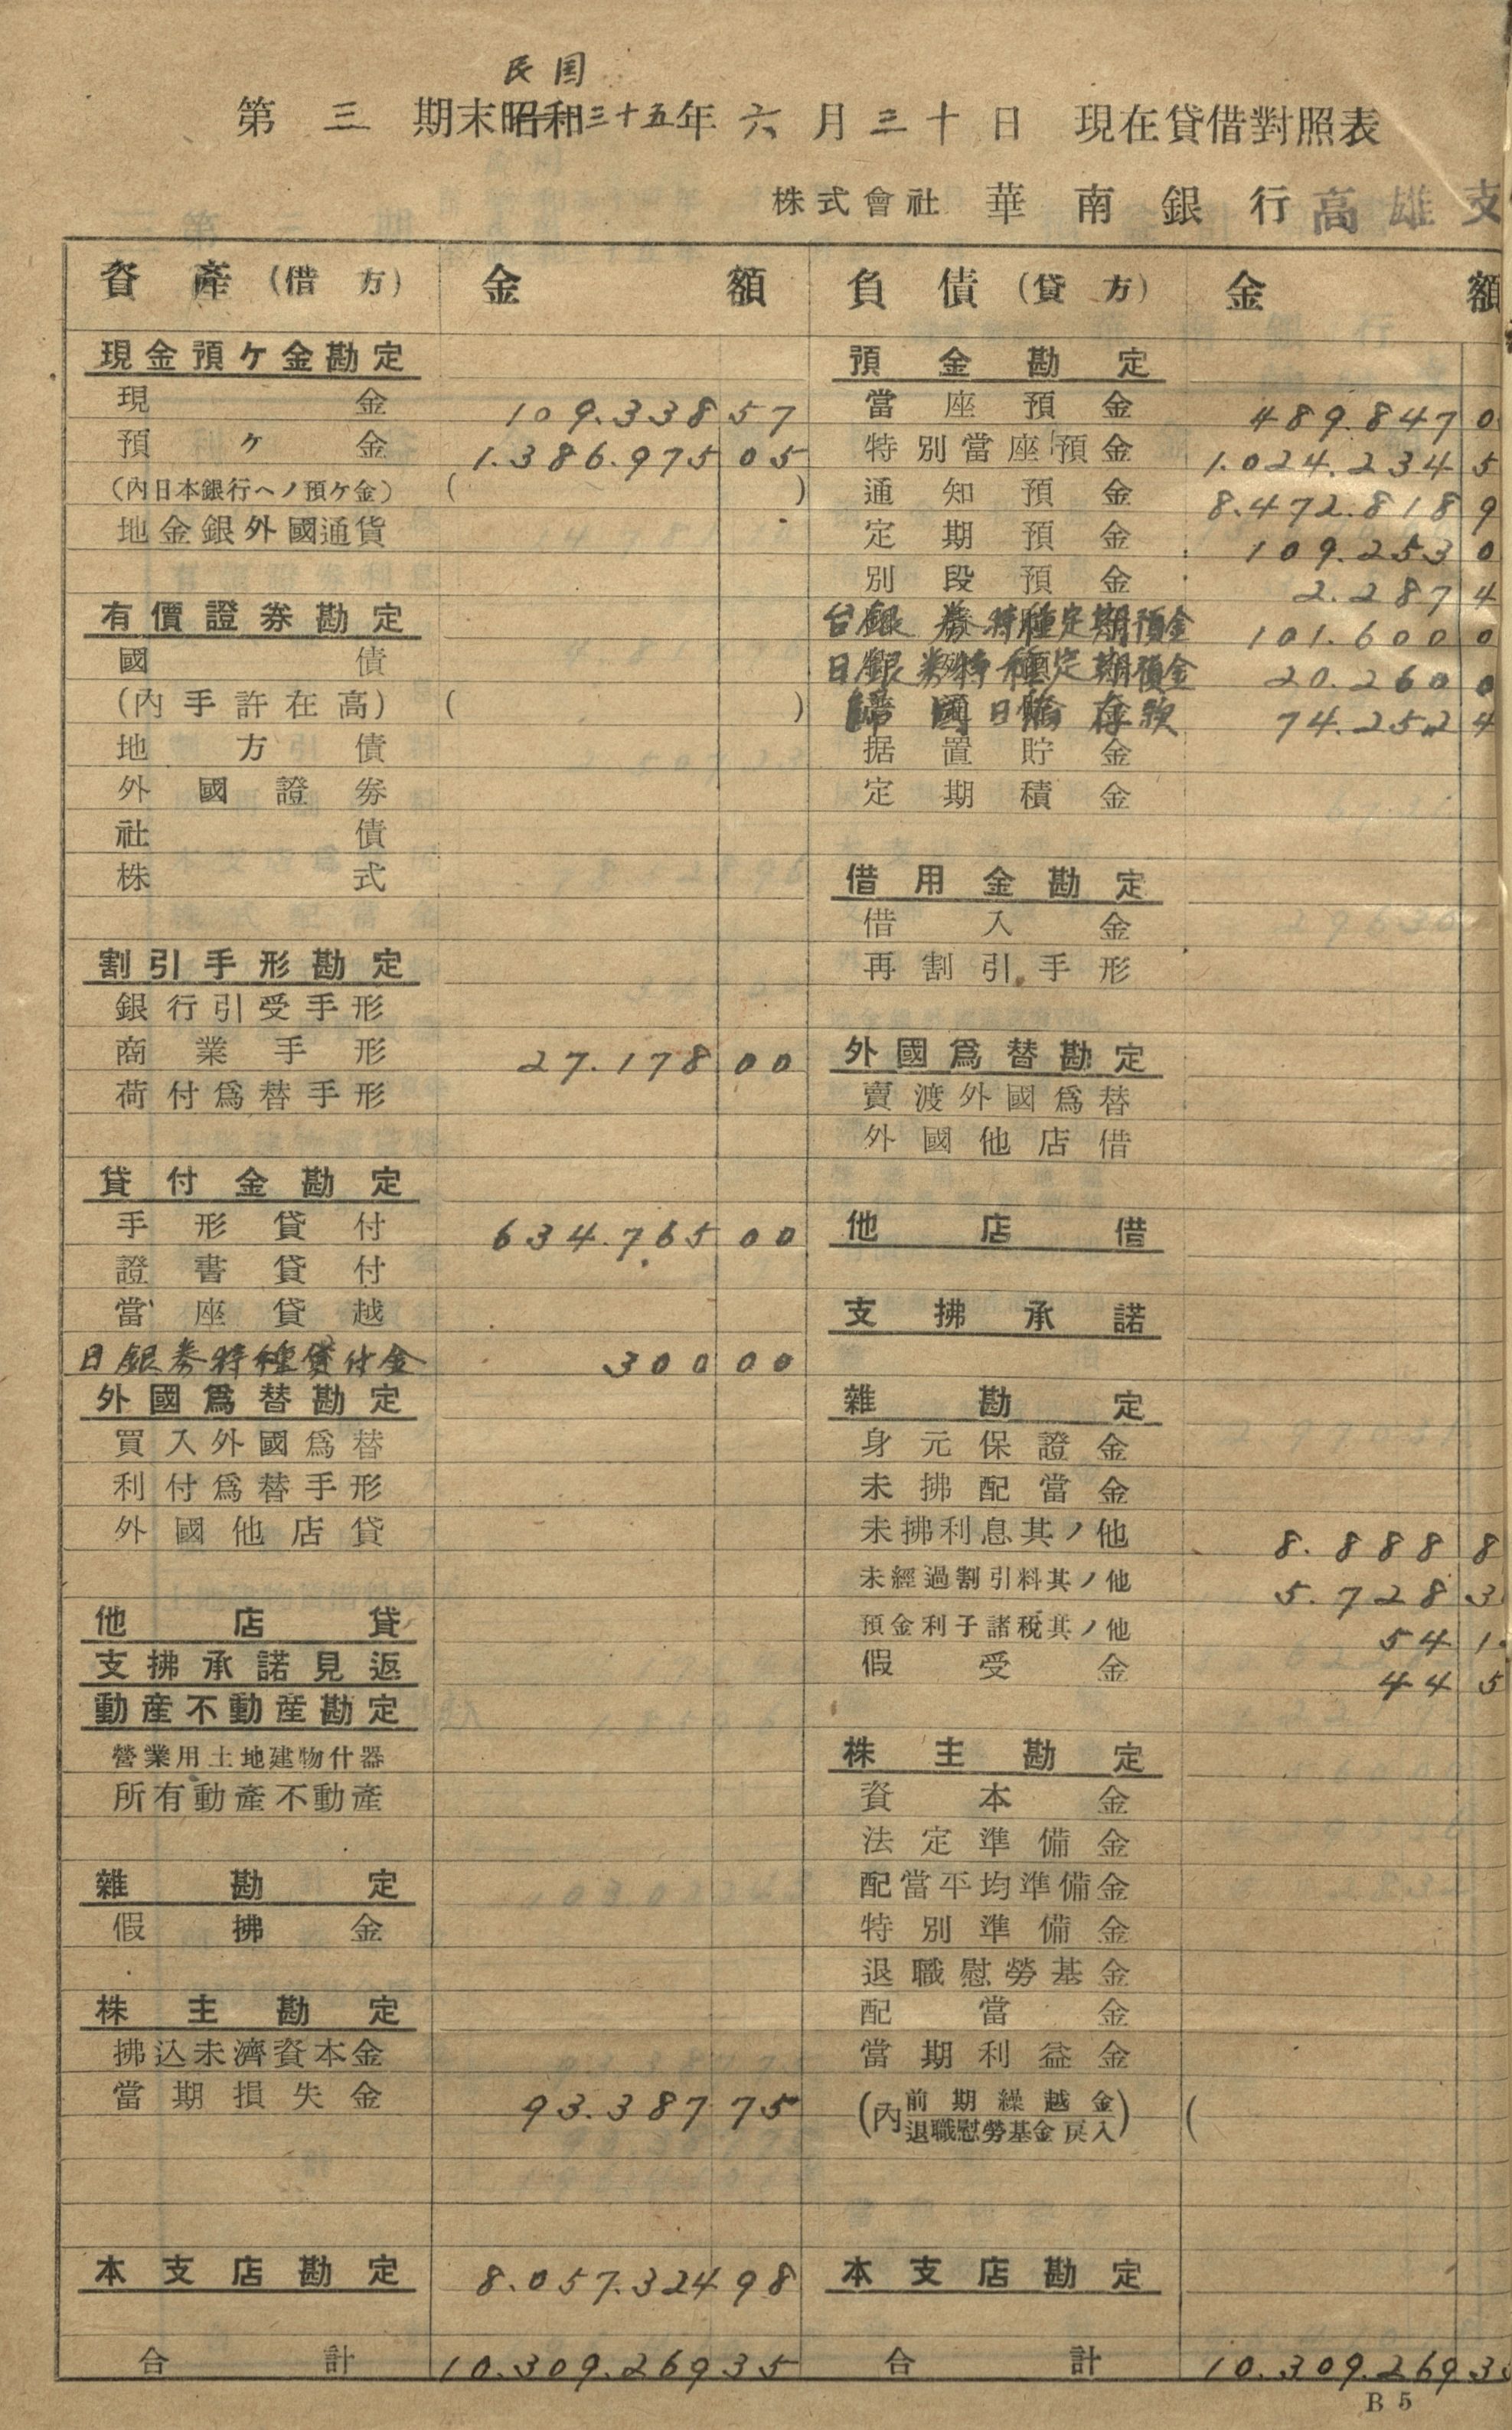 民国
第三期末昭和三十五年六月三十日 現在貸借對照表
株式會社 華南銀行高雄支
資產(借方) 金額 負債(貸方) 金額
現金預ケ金勘定 預金勘定
現金 109.338 57 當座預金 489.847 0
預ケ金 1.386.975 05 特別當座預金 1.024.234 5
(內日本銀行ヘノ預ケ金) ( ) 通知預金 8.472.818 9
地金銀外國通貨 定期預金 109.253 0
別段預金 2.287 4
有價證券勘定 台銀券特種定期預金 101.600 0
國債 日銀券特種定期預金 20.260 0
(內手許在高) ( ) 歸國日僑存款 74.252 4
地方債 据置貯金
外國證券 定期積金
社債
株式 借用金勘定
借入金
割引手形勘定 再割引手形
銀行引受手形
商業手形 27.178 00 外國爲替勘定
荷付爲替手形 賣渡外國爲替
外國他店借
貸付金勘定
手形貸付 634.765 00 他店借
證書貸付
當座貸越 支拂承諾
日銀券特種貸付金 300 00
外國爲替勘定 雜勘定
買入外國爲替 身元保證金
利付爲替手形 未拂配當金
外國他店貸 未拂利息其ノ他 8.888 8
未經過割引料其ノ他 5.728 3
他店貸 預金利子諸稅其ノ他 54 1
支拂承諾見返 假受金 44 5
動產不動產勘定
營業用土地建物什器 株主勘定
所有動產不動產 資本金
法定準備金
雜勘定 配當平均準備金
假拂金 特別準備金
退職慰勞基金
株主勘定 配當金
拂込未濟資本金 當期利益金
當期損失金 93.387 75 (內前期繰越金 退職慰勞基金戾入) (
本支店勘定 8.057.324 98 本支店勘定
合計 10.309.269 35 合計 10.309.269 3
B5